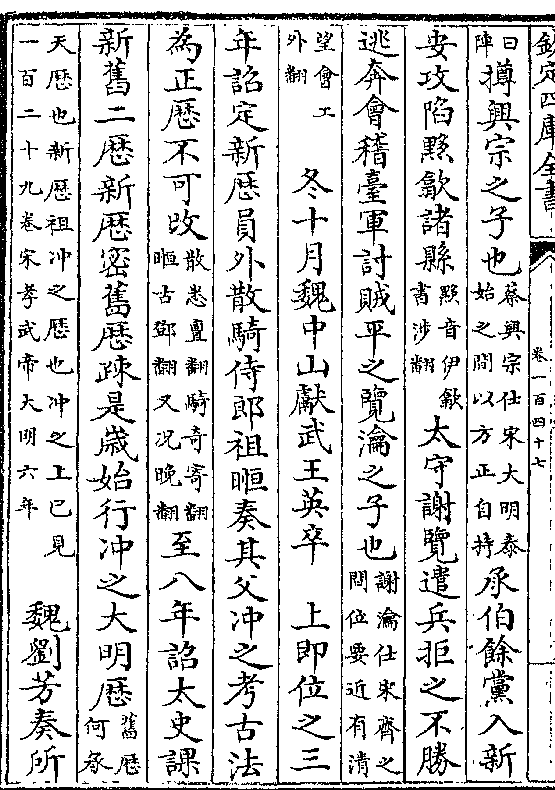 欽定四庫全書
卷一百四十七
曰陣撙興宗之子也蔡興宗仕宋大明泰始之間以方正自持承伯餘黨入新
安攻陷黟歙諸縣黟音伊歙書涉翻太守謝覽遣兵拒之不勝
逃奔會稽臺軍討賊平之覽瀹之子也謝瀹仕宋齊之間位要近有清
望會工外翻 冬十月魏中山獻武王英卒 上即位之三
年詔定新厯員外散騎侍郎祖暅奏其父沖之考古法
為正厯不可改散悉亶翻騎奇寄翻暅古鄧翻又况晚翻至八年詔太史課
新舊二厯新厯密舊厯疎是歲始行沖之大明厯舊厯何承
天厯也新厯祖沖之厯也沖之上已見一百二十九卷宋孝武帝大明六年 魏劉芳奏所